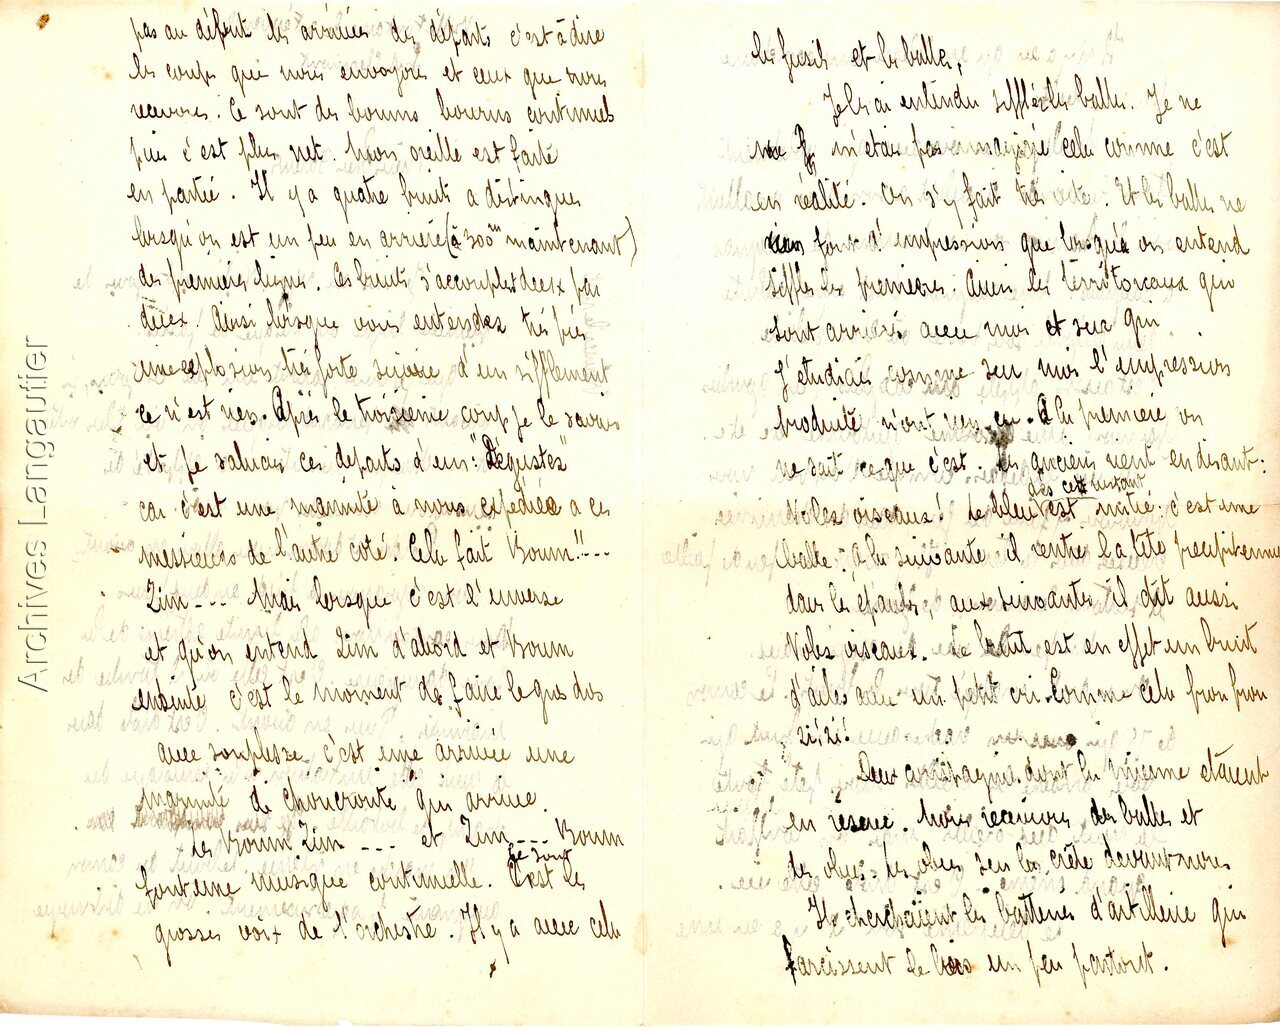 pas au début les arrivées des départs c'est à dire
les coups que nous envoyons et ceux que nous
recevons. Ce sont des boums boums continuels
puis c'est plus net. Mon oreille est faite
en partie. Il y a quatre bruits a distinguer
lorsqu'on est un peu en arrière (à 300m maintenant)
des premières lignes. Ces bruits s'accouplent deux par
deux. Ainsi lorsque vous entendez très près
une explosion très forte suivie d'un sifflement
ce n'est rien. Après le troisième coup je le savais
et je saluais ces départs d'un: "Dégustez"
car c'est une marmite à nous expédiée a ces
messieurs de l'autre coté. Cela fait Boum" ---
Zim --- Mais lorsque c'est l'inverse
et qu'on entend Zim d'abord et Boum
ensuite c'est le moment de faire le gros dos
avec souplesse c'est une arrivée une
marmite de choucroute qui arrive.
Les Boum Zim --- et Zim --- Boum
font une musique continuelle. Ce sont les
grosses voix de l'orchestre. Il y a avec cela
les fusils et les balles,
Je les ai entendu siffler les balles. Je ne
m'étais pas imaginé cela comme c'est
en réalité. On s'y fait très vite. Et les balles ne
font d'impression que lorsque on entend
siffler les premières. Aussi les territoriaux qui
sont arrivés avec moi et sur qui
j'étudiais comme sur moi l'impression
produite n'ont rien eu. A la première on
ne sait ce que c'est. Les anciens rient en disant:
dès cet instant
Noles oiseaux! Le bleu est initié: c'est une
balle. à la suivante il rentre la tête
dans les épaules, aux suivantes il dit aussi
Noles oiseaux. Le bruit est en effet un bruit
d'ailes avec un petit cri. Comme cela frou frou
zi! zi!
Deux compagnies dont la mienne étaient
en réserve. Nous recevions des balles et
des obus. les obus sur la crête devant nous
Ils cherchaient les batteries d'artillerie qui
farcissent le bois un peu partout.
Archives Langautier